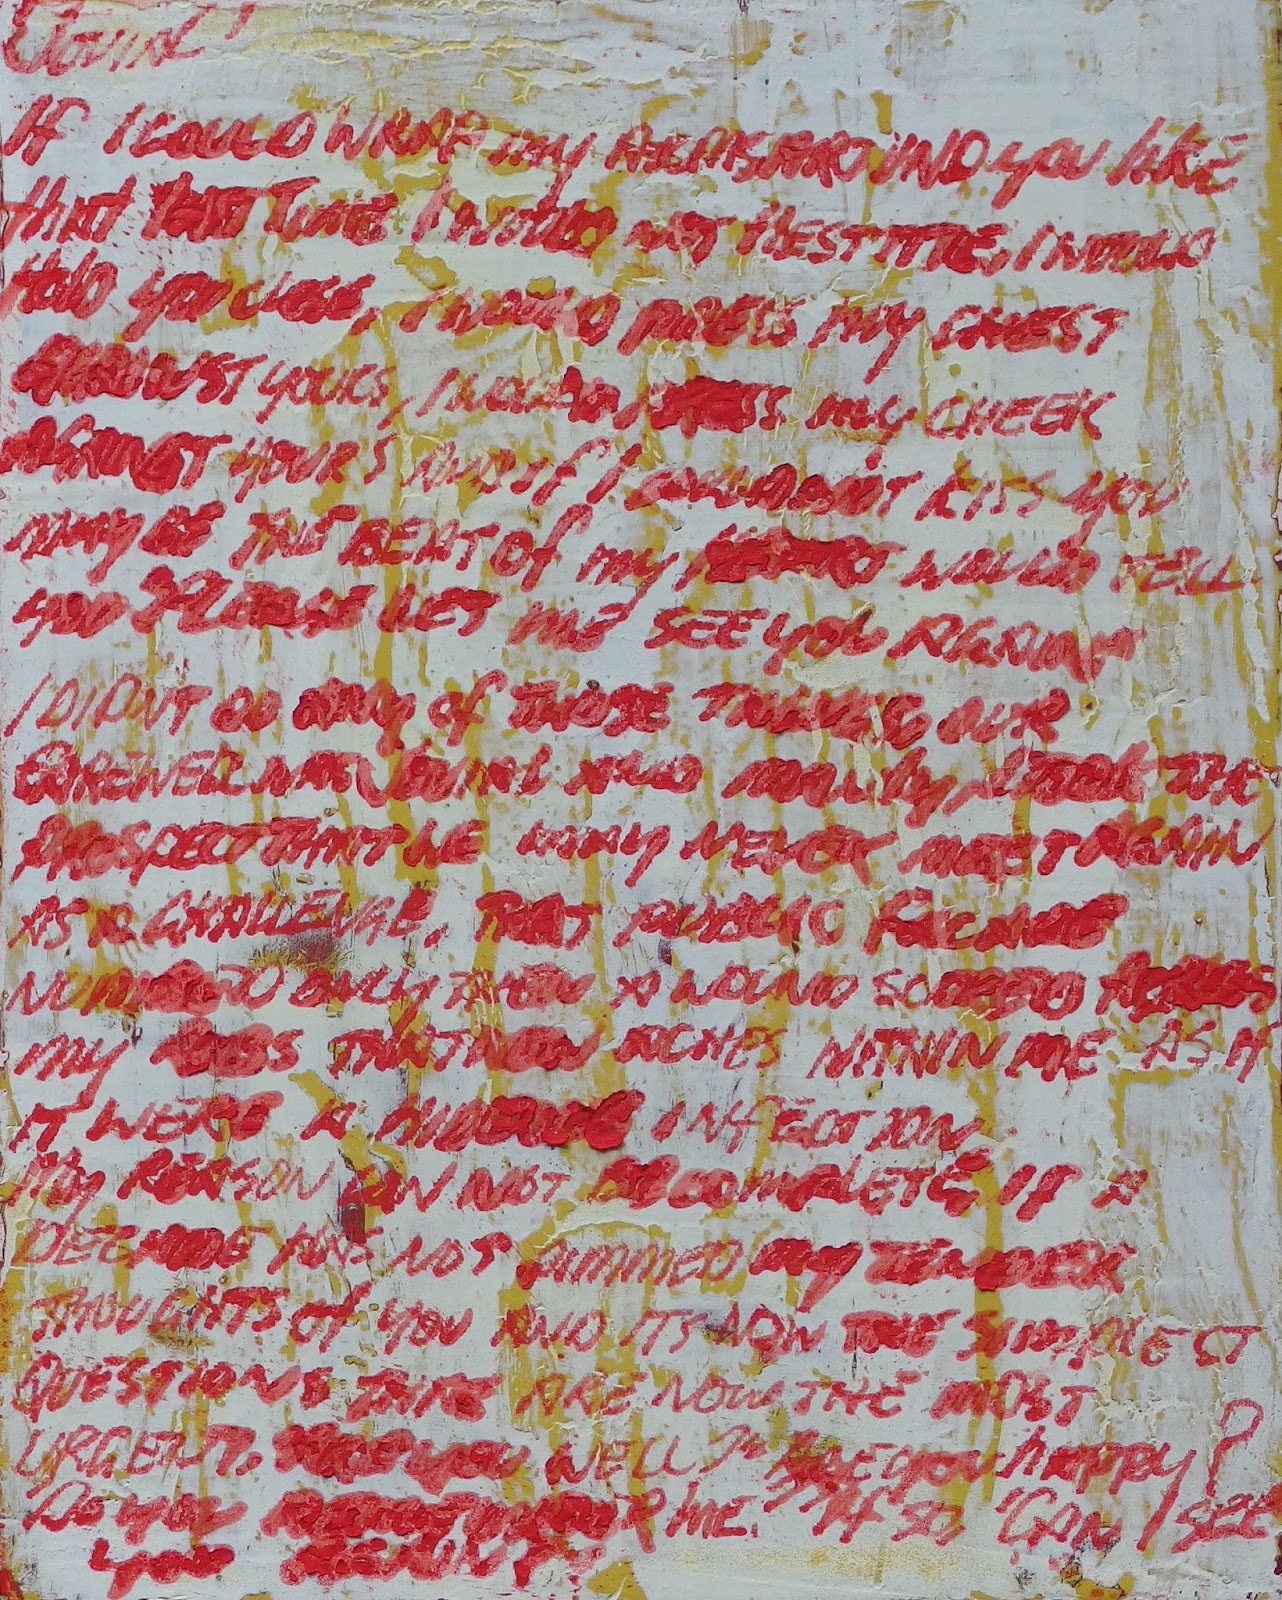 IF I COULD WRAP my ARMS AROUND you LIKE
THAT LAST TIME I WOULD NOT HESITATE, I WOULD
HOLD you CLOSE, I WOULD PRESS my CHEST
AGAINST YOURS, I WOULD PRESS my CHEEK
AGAINST YOURS AND if I COULDN'T KISS you
MAY BE THE BEAT Of my HEART WOULD TELL
YOU PLEASE LET ME SEE you AGAIN"
I DIDN'T DO ANY of THOSE THINGS, OUR
FAREWELL WAS JOVIAL AND MANLY, I TOOK THE
PROSPECT THAT WE MAY NEVER MEET AGAIN
AS A CHALLENGE, THAT PUBLIC FACADE
ONLY THEN A WOUND ACROSS
my THAT NOW ACHES WITHIN ME AS IF
IT WERE A INFECTION
My REASON CAN NOT BE COMPLETE, IF A
DECADE HAS NOT DIMMED my TENDER
THOUGHTS Of YOU AND ITS NOW THE SIMPLEST
QUESTIONS THAT ARE NOW THE MOST
URGENT. ARE YOU WELL? ARE you happy?
DO you REMEMBER ME. If SO, "CAN I SEE
you AGAIN?"